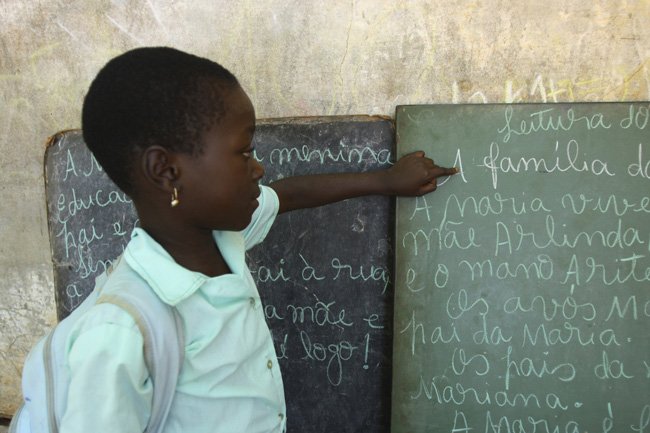 A menina
educa
pai
pai à rua,
mãe e
é logo!
Leitura do
A família da
A Maria vive
mãe Arlinda,
e o mano
Os avós
pai da Maria.
Os pais da
Mariana.
A Maria é